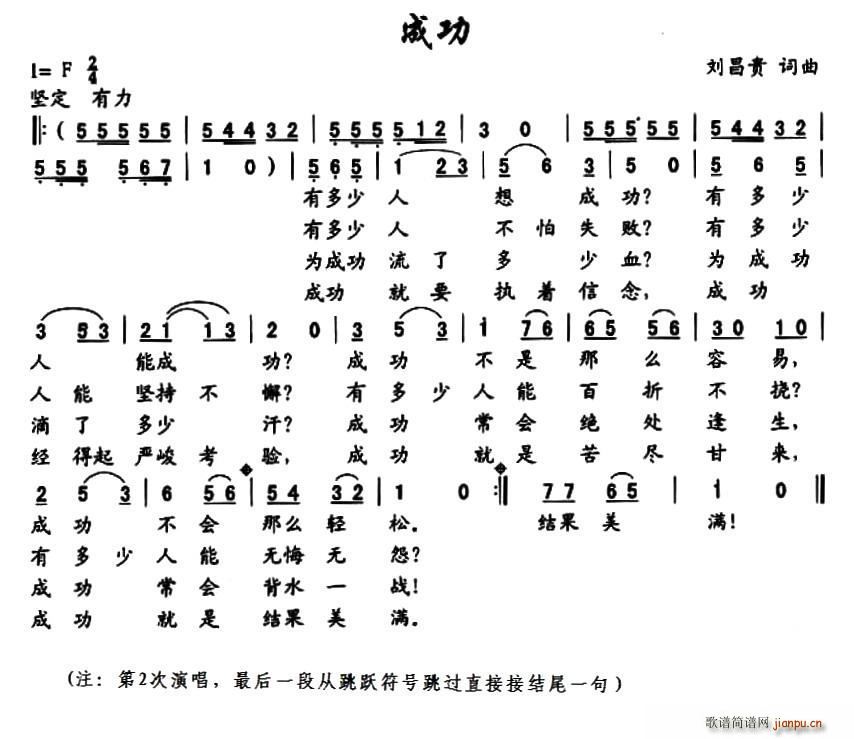 成功
1= F 2/4
刘昌贵 词曲
坚定 有力
‖:( 5 5 5 5 5 | 5 4 4 3 2 | 5 5 5 5 1 2 | 3 0 | 5 5 5 5 5 | 5 4 4 3 2 |
5 5 5 5 6 7 | 1 0 ) | 5 6 5 | 1 2 3 | 5 6 3 | 5 0 | 5 6 5 |
有多少 人 想 成 功? 有 多少
有多少 人 不 怕 失 败? 有 多少
为成功 流 了 多 少 血? 为 成功
成功 就 要 执 着 信 念, 成 功
3 5 3 | 2 1 1 3 | 2 0 | 3 5 3 | 1 7 6 | 6 5 5 6 | 3 0 1 0 |
人 能成 功? 成 功 不 是 那 么 容 易,
人 能 坚持 不 懈? 有 多 少 人 能 百 折 不 挠?
滴 了 多少 汗? 成 功 常 会 绝 处 逢 生,
经 得起 严峻 考 验, 成 功 就 是 苦 尽 甘 来,
2 5 3 | 6 5 6 | 5 4 3 2 | 1 0 :‖ 7 7 6 5 | 1 0 ‖
成 功 不 会 那 么 轻 松. 结果 美 满!
有 多 少 人 能 无 悔 无 怨?
成 功 常 会 背水 一 战!
成 功 就 是 结果 美 满.
(注: 第2次演唱, 最后一段从跳跃符号跳过直接接结尾一句)
歌谱简谱网
jianpu.cn